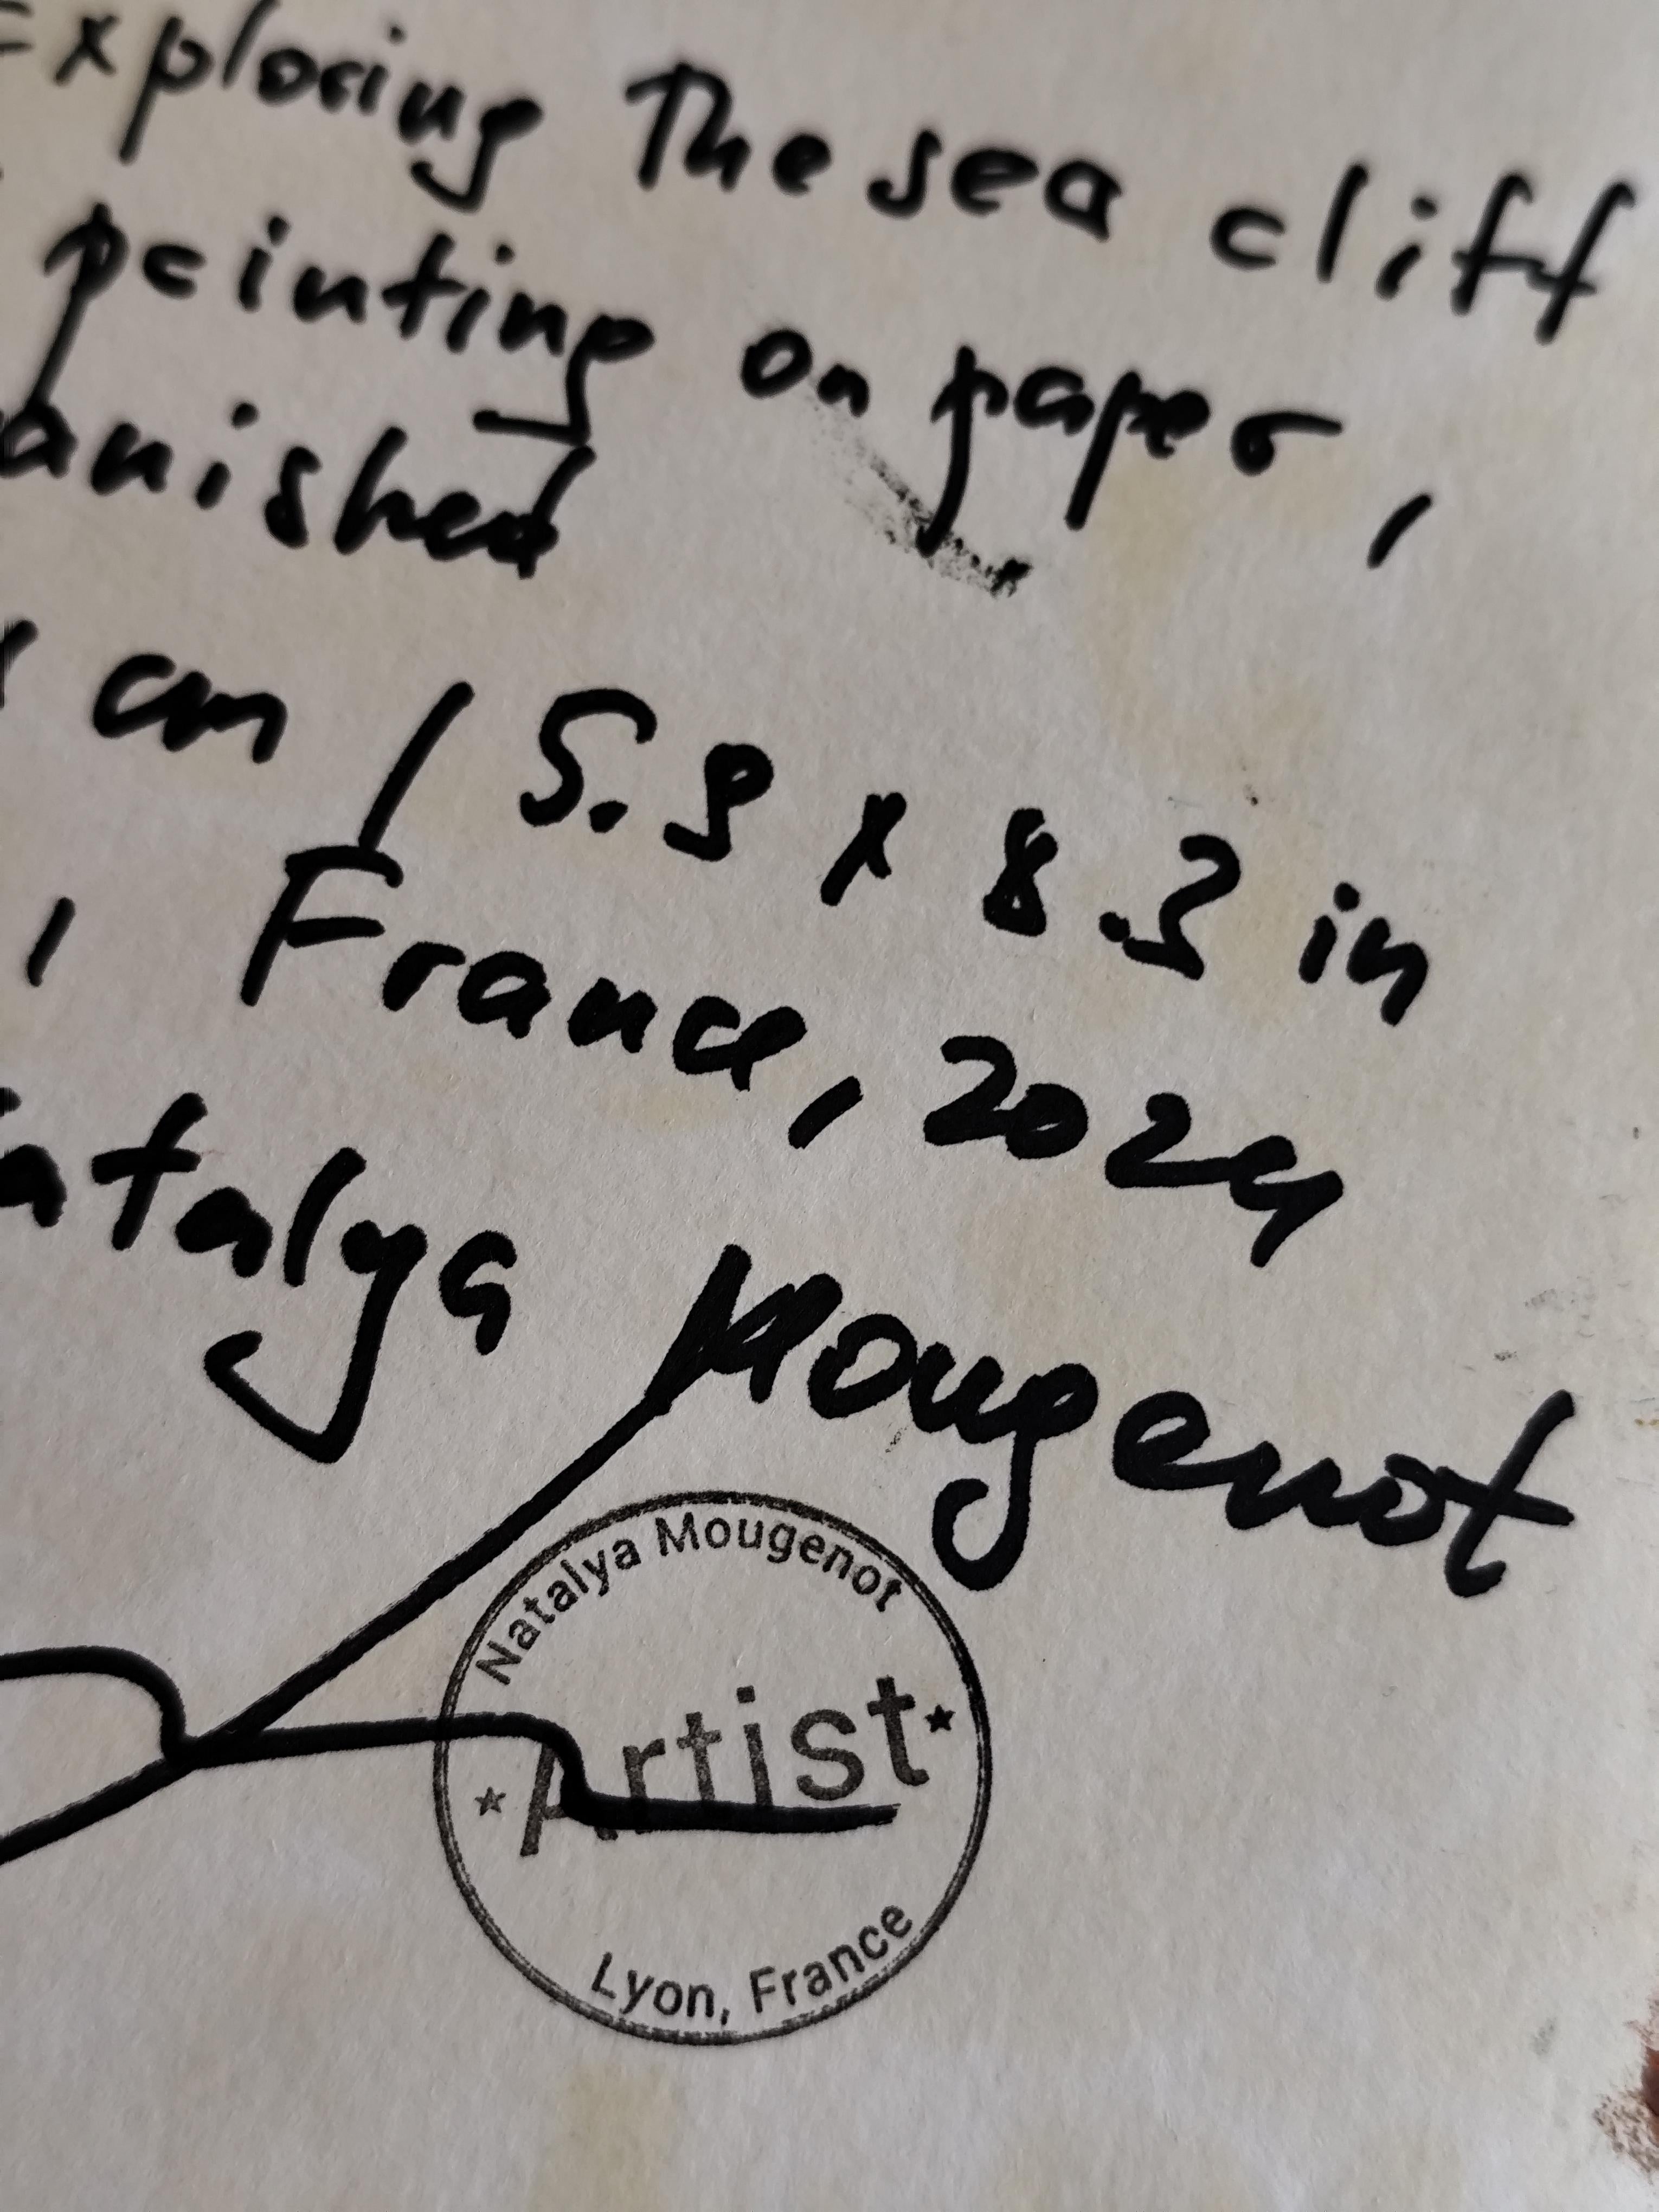 Exploring The sea cliff
painting on paper,
anished
cm / 5.9 x 8.3 in
, France, 2024
atalya Mougenot
Natalya Mougenot
Artist
Lyon, France